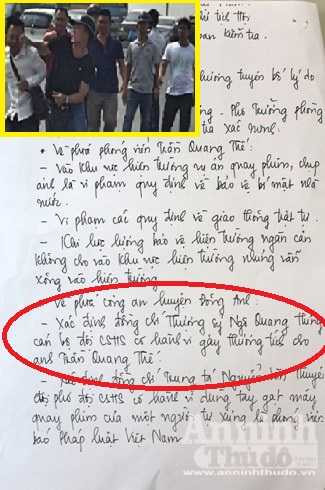 kiểm tra
tuyên bố lý do
Phó Trưởng phòng
xác minh.
• Về phía phóng viên Trần Quang Thế:
- Vào khu vực hiện trường vụ án quay phim, chụp
ảnh là vi phạm quy định về bảo vệ bí mật nhà
nước.
- Vi phạm các quy định về giao thông trật tự.
- Khi lực lượng bảo vệ hiện trường ngăn cản
không cho vào khu vực hiện trường nhưng vẫn
xông vào hiện trường
Về phía công an huyện Đông Anh:
- Xác định đồng chí Thượng sỹ Ngô Quang Hùng
cán bộ đội CSHS có hành vi gây thương tích cho
anh Trần Quang Thế.
- Xác định đồng chí Trung tá Nguyễn
đội phó đội CSHS có hành vi dùng tay gạt máy
quay phim của một người tự xưng là phóng viên
báo Pháp luật Việt Nam
An ninh
Thủ đô
www.anninhthudo.vn